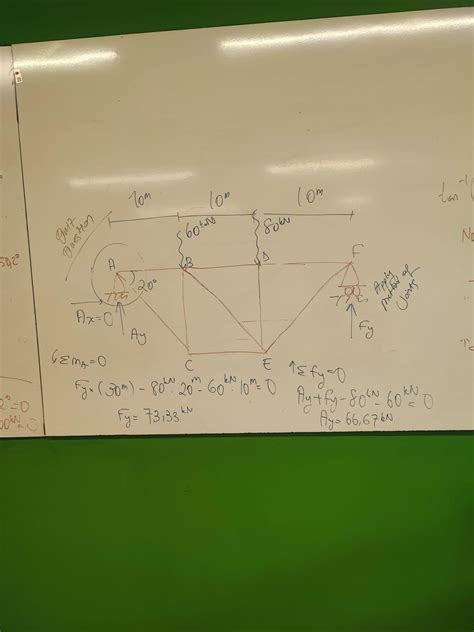 10m 10m 10m
Quiz
Question
60kN 80kN
A B D F
20°
Apply
method of
Joints
Ax=0
Ay
Fy
C E
ΣmA=0
Fy×(30m) - 80kN·20m - 60kN·10m=0
Fy= 73,33kN
↑Σfy=0
Ay+fy-80kN-60kN=0
Ay=66,67kN
tan⁻¹